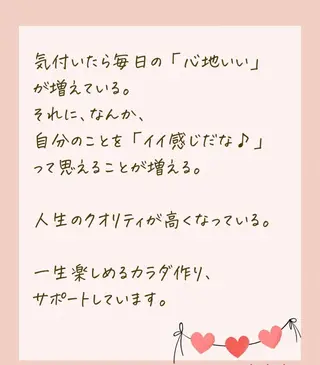 気付いたら毎日の「心地いい」
が増えている。
それに、なんか、
自分のことを「イイ感じだな♪」
って思えることが増える。
人生のクオリティが高くなっている。
一生楽しめるカラダ作り、
サポートしています。